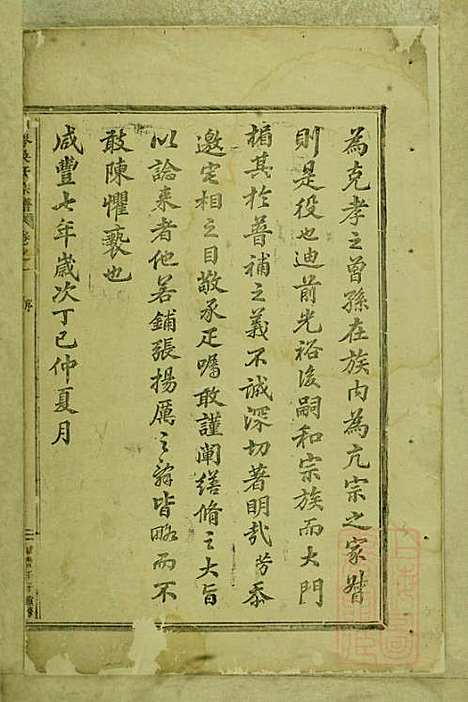 為克孝之曾孫在族內為亢宗之家督
則是役也迪前光裕後嗣和宗族而大門
楣其於普補之義不誠深切著明哉芳忝
邀定相之目敬承疋囑敢謹闡繕脩之大旨
以諗來者他若鋪張揚厲之辭皆略而不
敢陳懼褻也
咸豐七年歲次丁巳仲夏月
序